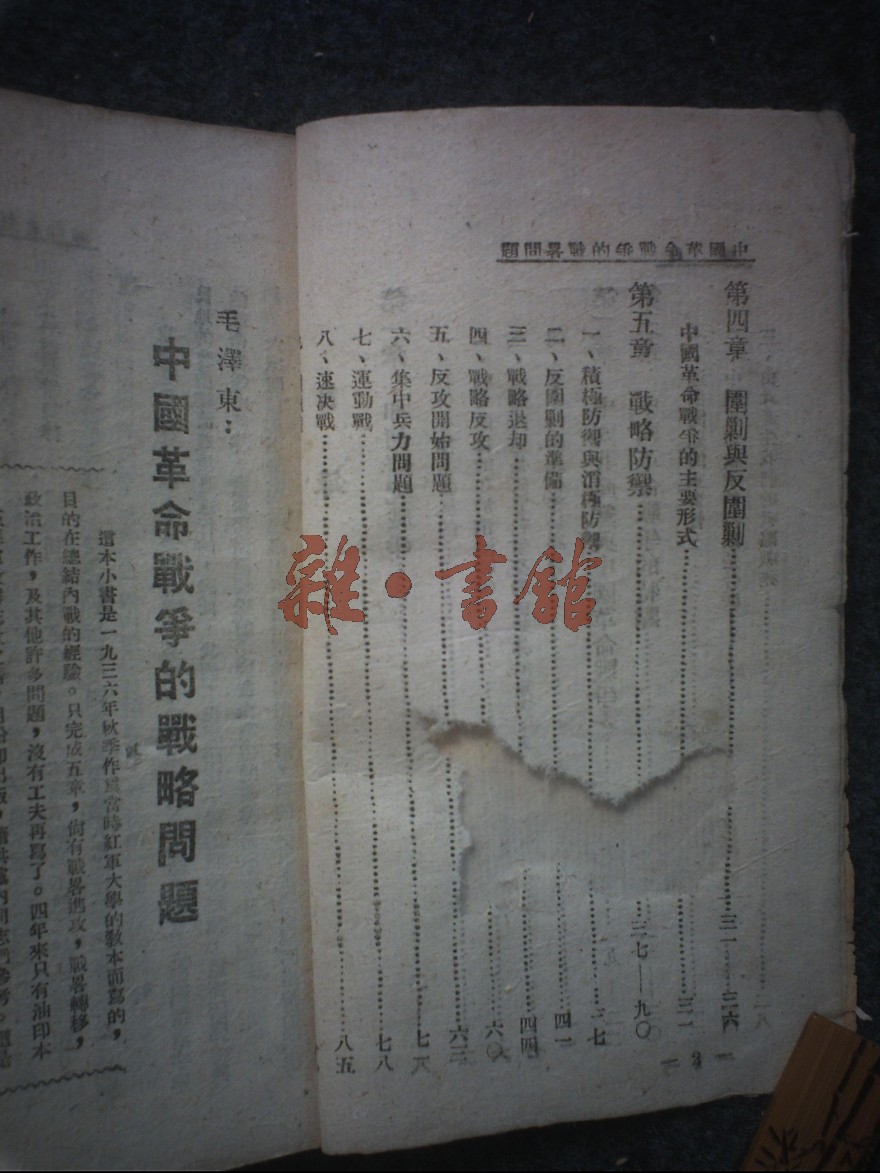 中國革命戰爭的戰畧問題
第四章 圍剿與反圍剿……三一—三六
中國革命戰爭的主要形式……三一
第五章 戰略防禦……三七—九〇
一、積極防禦與消極防禦……三七
二、反圍剿的準備……四一
三、戰略退却……四四
四、戰略反攻……六〇
五、反攻開始問題……六三
六、集中兵力問題……七一
七、運動戰……七八
八、速決戰……八五
毛澤東：
中國革命戰爭的戰略問題
這本小書是一九三六年秋季作爲當時紅軍大學的敎本而寫的，
目的在總結內戰的經驗。只完成五章，尙有戰畧進攻，戰畧轉移，
政治工作，及其他許多問題，沒有工夫再寫了。四年來只有油印本
雜·書館